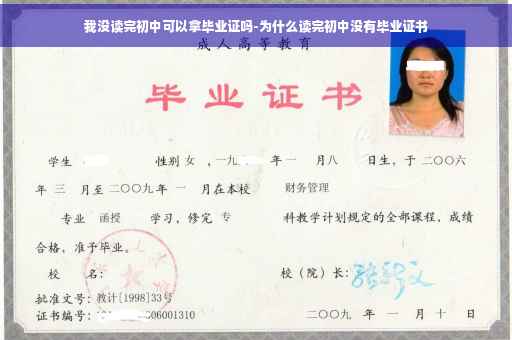 我没读完初中可以拿毕业证吗-为什么读完初中没有毕业证书
成人高等教育
毕业证书
学生 性别 女 ，一九 年一 月八 日生，于二〇〇六
年 三 月至二〇〇九年 一 月在本校 财务管理
专业 函授 学习，修完 专 科教学计划规定的全部课程，成绩
合格，准予毕业。
校 名： 校（院）长：
批准文号：教计[1998]33号
证书编号： 06001310 二〇〇九 年 一 月 十 日